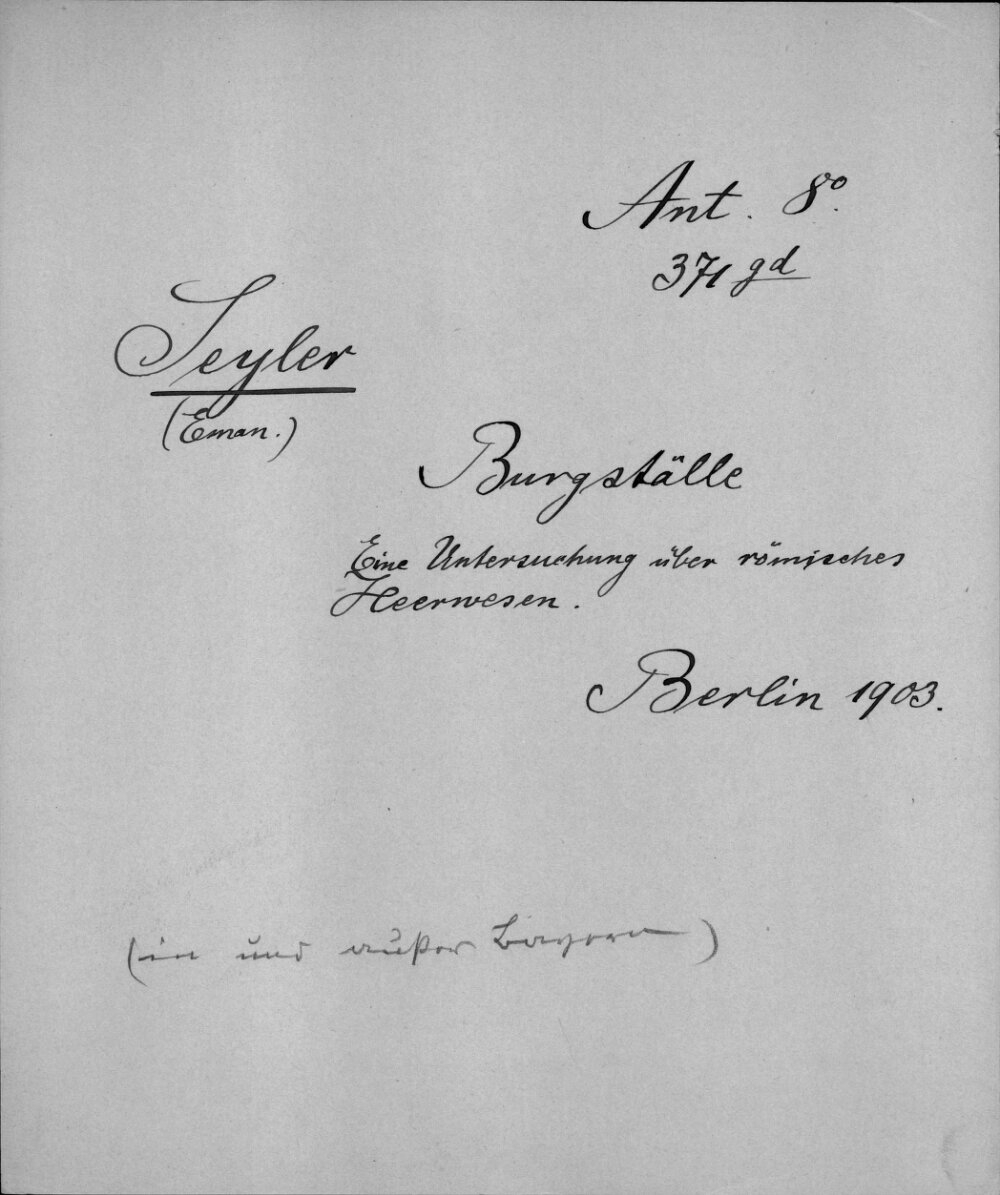 Ant. 8°.
371 gd
Seyler
(Eman.)
Burgställe
Eine Untersuchung über römisches
Heerwesen.
Berlin 1903.
(in und außer Bayern)